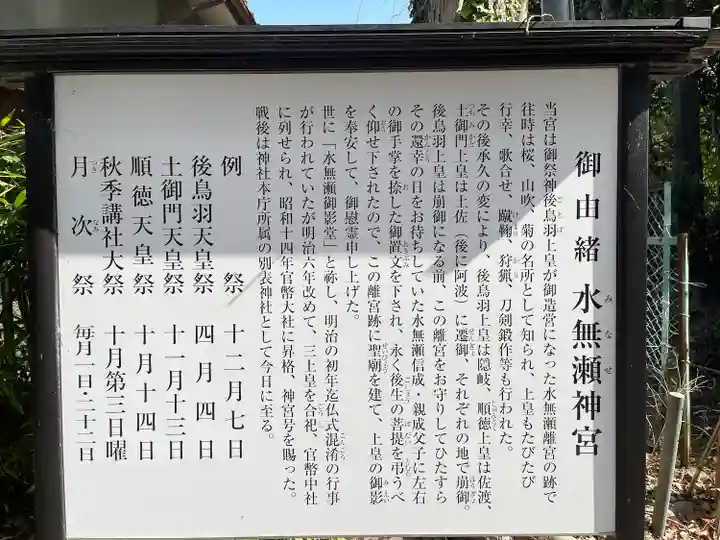 御由緒 水無瀬神宮
みなせ
当宮は御祭神後鳥羽上皇が御造営になった水無瀬離宮の跡で
ごとば
往時は桜、山吹、菊の名所として知られ、上皇もたびたび
行幸、歌合せ、蹴鞠、狩猟、刀剣鍛作等も行われた。
その後承久の変により、後鳥羽上皇は隠岐、順徳上皇は佐渡、
土御門上皇は土佐（後に阿波）に遷御、それぞれの地で崩御。
つちみかど
せんぎょ
ほうぎょ
後鳥羽上皇は崩御になる前、この離宮をお守りしてひたすら
その還幸の日をお待ちしていた水無瀬信成・親成父子に左右
かんこう
の御手掌を捺した御置文を下され、永く後生の菩提を弔うべ
ぼだい
く仰せ下されたので、この離宮跡に聖廟を建て、上皇の御影
せいびょう
みえい
を奉安して、御慰霊申し上げた。
世に「水無瀬御影堂」と称し、明治の初年迄仏式混淆の行事
こんこう
が行われていたが明治六年改めて、三上皇を合祀、官幣中社
ごうし
に列せられ、昭和十四年官幣大社に昇格、神宮号を賜った。
戦後は神社本庁所属の別表神社として今日に至る。
例祭 十二月七日
後鳥羽天皇祭 四月四日
土御門天皇祭 十一月十三日
順徳天皇祭 十月十四日
秋季講社大祭 十月第三日曜
月次祭 毎月一日・二十二日
つきなみ